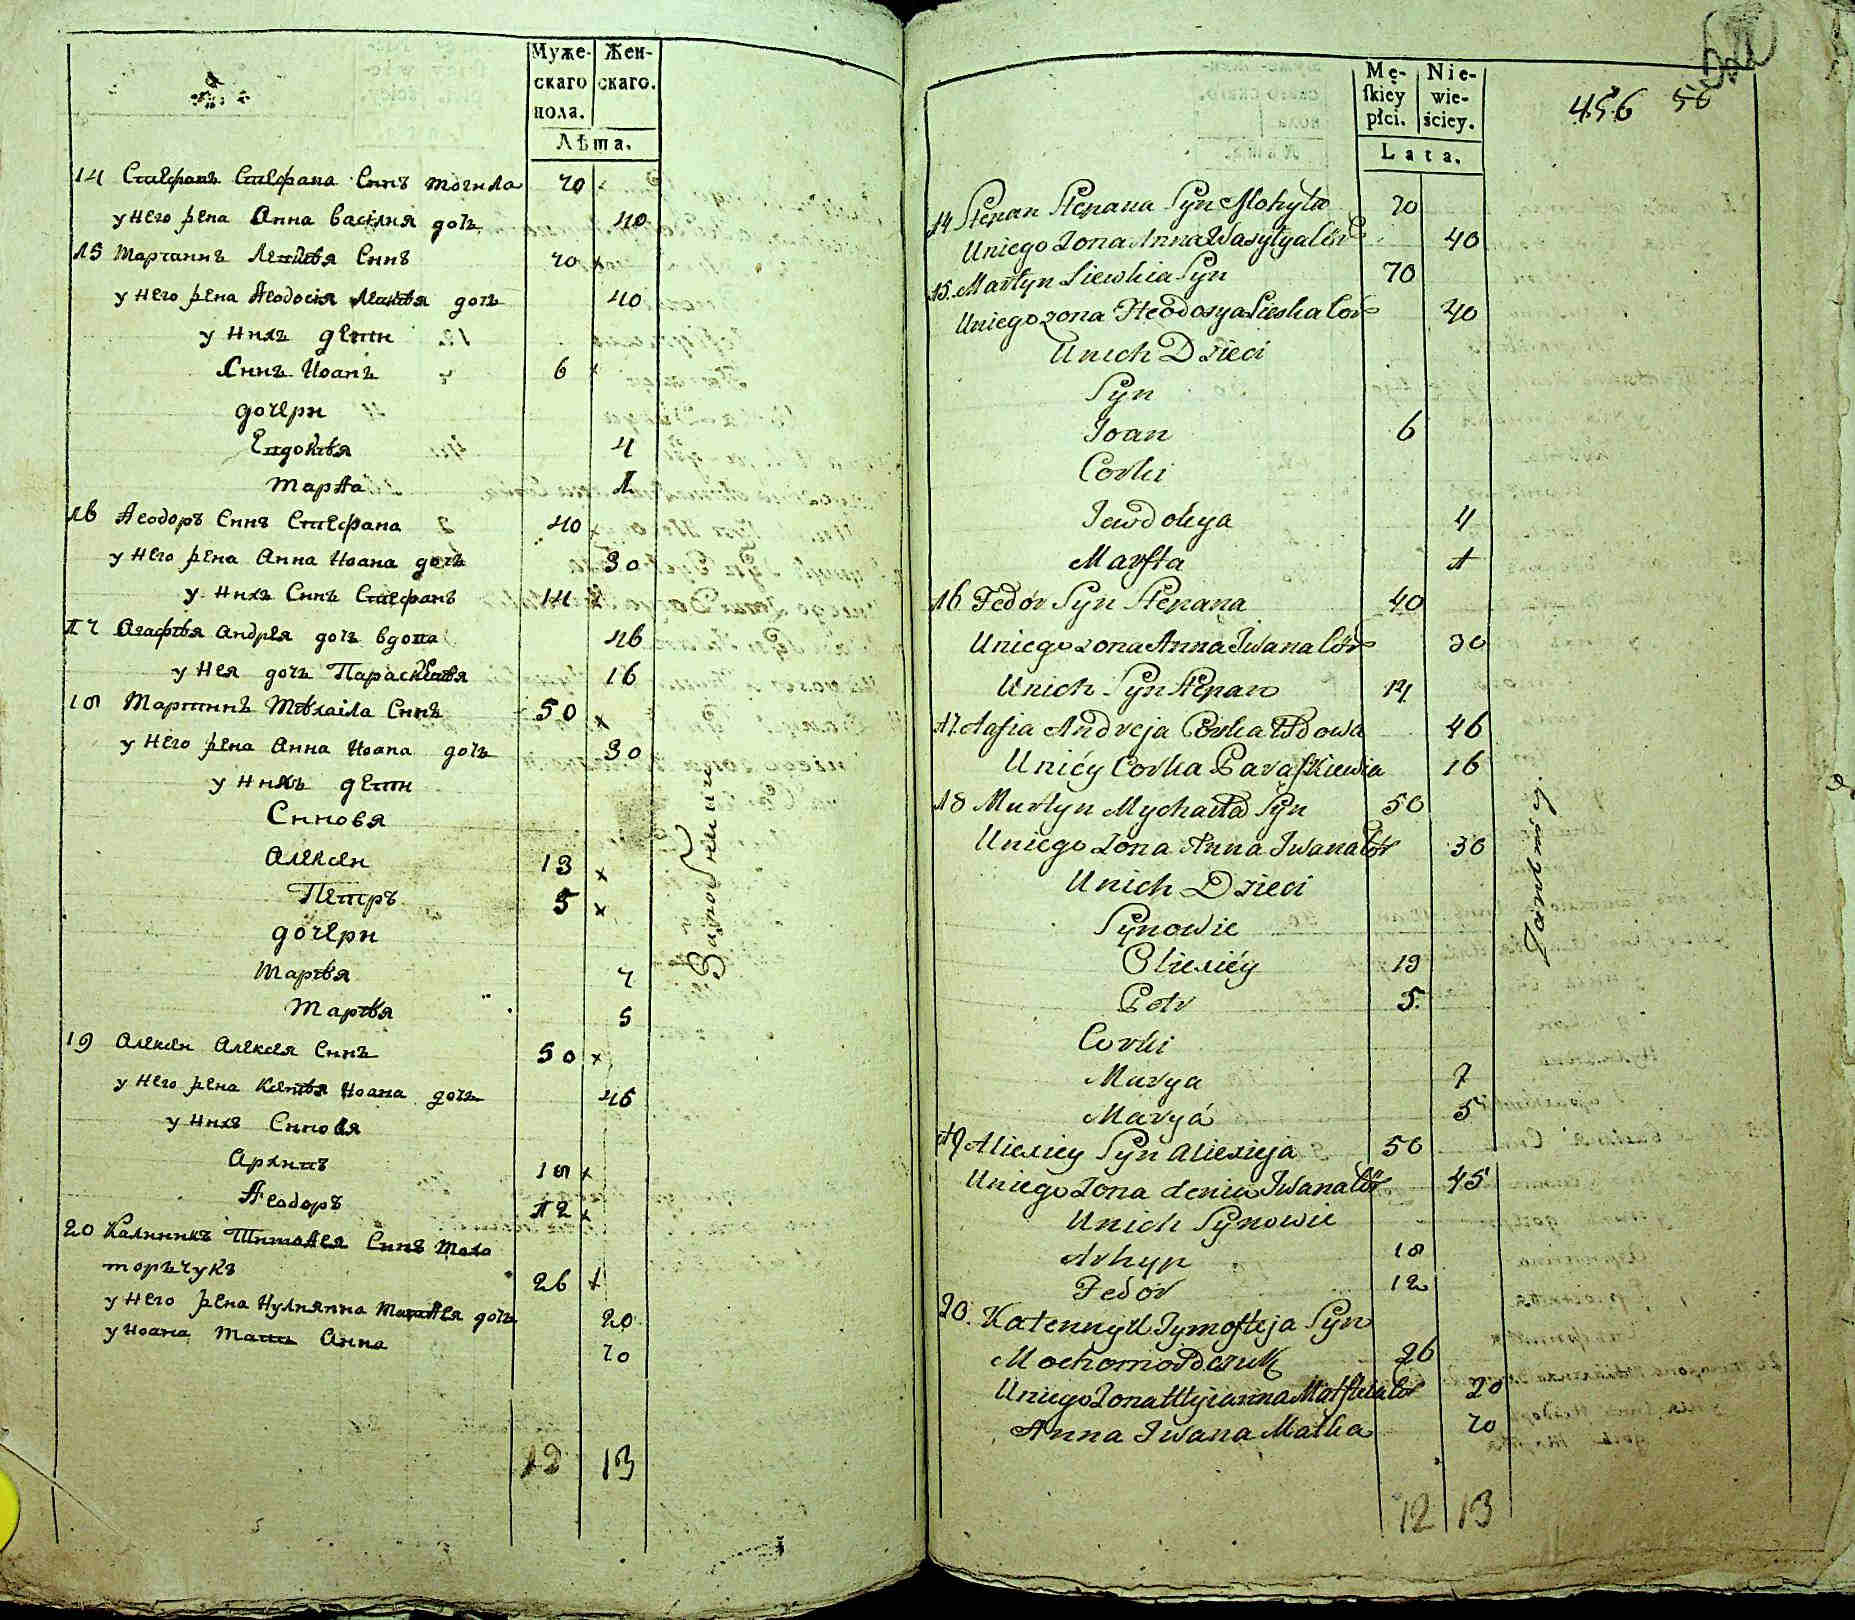 Муже-
скаго
пола.
Жен-
скаго.
Лѣта.
14 Стефанъ Стефана Синъ Могила 70
у него жена Анна Василия дочъ 40
15 Мартинъ Левкѣя Синъ 70
у него жена Ѳеодосия Левкѣя дочъ 40
у нихъ дети
Синъ Иоанъ 6
дочери
Евдокѣя 4
Марѳа 1
16 Ѳеодоръ Синъ Стефана 40
у него жена Анна Иоана дочъ 30
у нихъ Синъ Стефанъ 14
17 Агафѣя Андрея дочъ вдова 46
у нея дочъ Параскевѣя 16
18 Мартинъ Мѣхаіла Синъ 50
у него жена Анна Иоана дочъ 30
у нихъ дети
Синовя
Алексеи 13
Петръ 5
дочери
Марѣя 7
Марѣя 5
19 Алексеи Алексея Синъ 50
у него жена Иоана дочъ 45
у нихъ Синовя
Архипъ 18
Ѳеодоръ 12
20 Калиникъ Тимоѳея Синъ Мохо
морьчукъ 26
у него жена Иулиянна Матѳея дочъ 20
у Иоана Мать Анна 70
12 13
Mę-
skiey
płci.
Nie-
wie-
ściey.
Lata.
456 56
14 Stepan Stepana Syn Mohyła 70
Uniego Zona Anna Wasylya Cór 40
15. Martyn Liewkia Syn 70
Uniego zona Fteodosya Cór 40
Unich Dzieci
Syn
Joan 6
Corki
Jewdokya 4
Marfta 1
16 Fedór Syn Stepana 40
Uniego zona Anna Iwana Cór 30
Unich Syn Stepan 14
17. Andreja Córka Wdowa 46
Uniéy Corka Paraskiewia 16
18 Martyn Mychayła Syn 50
Uniego Zona Anna Iwana Cór 30
Unich Dzieci
Synowie
Oliexiéy 13
Petr 5
Corki
Marya 7
Marya 5
19 Aliexiey Syn Aliexieja 50
Uniego Zona Iwana Cór 45
Unich Synowie
Arhyp 18
Fedór 12
20. Kalennyk Tymofteja Syn
26
Uniego Zona Cór 20
Anna Iwana Matka 70
12 13